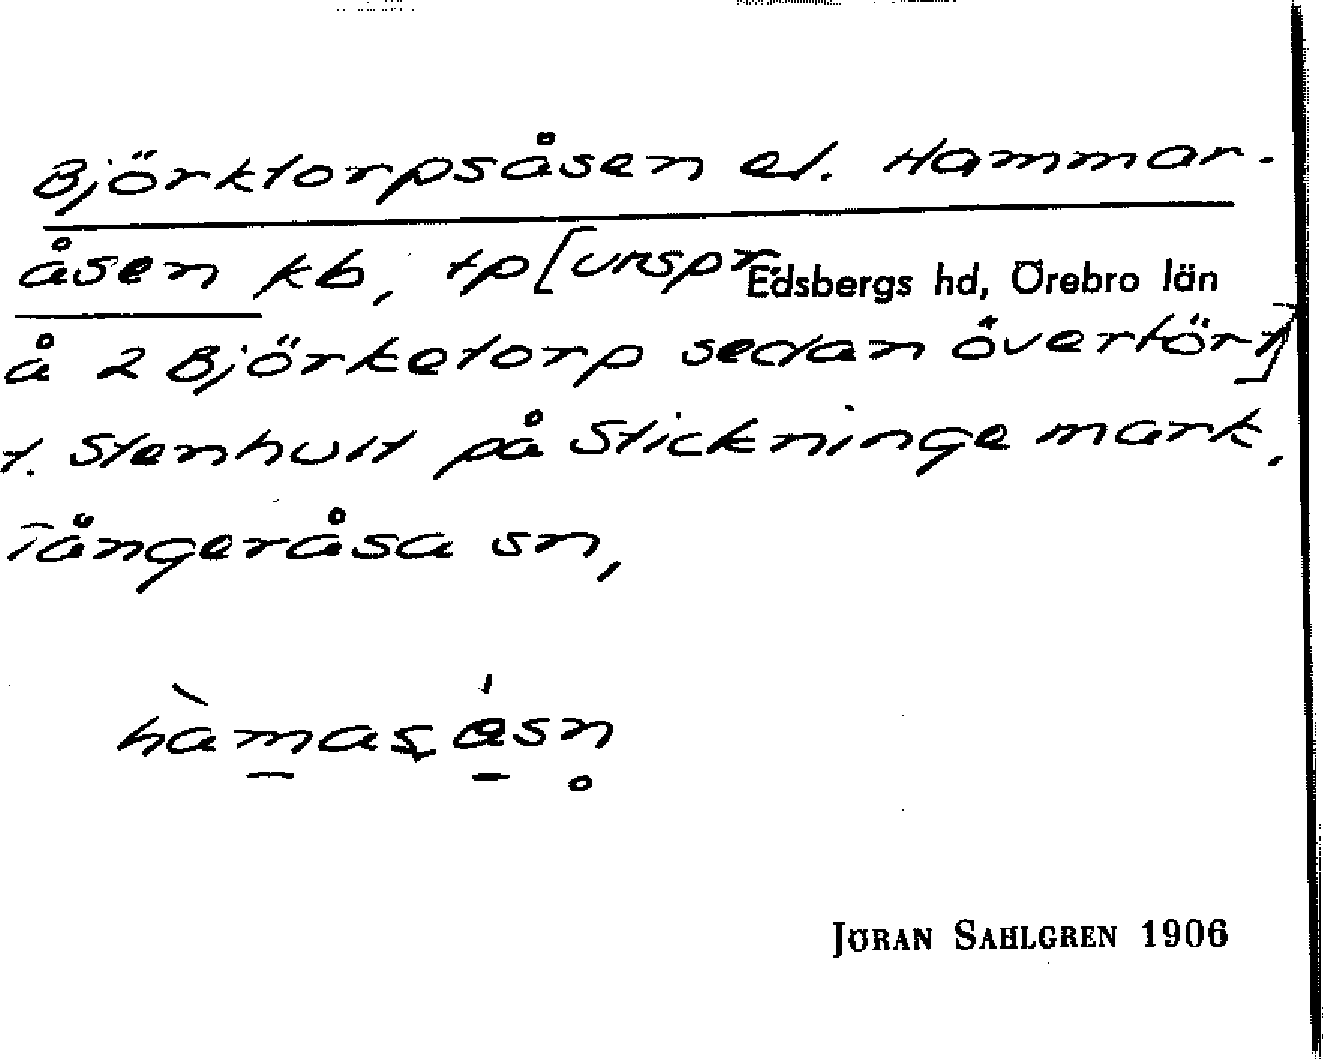 Björktorpsåsen el. Hammar-
åsen kb, tp [urspr.
Edsbergs hd, Örebro län
å 2 Björketorp sedan överfört]
t. Stenhult på Stickninge mark.
Tångeråsa sn,
JÖRAN SAHLGREN 1906